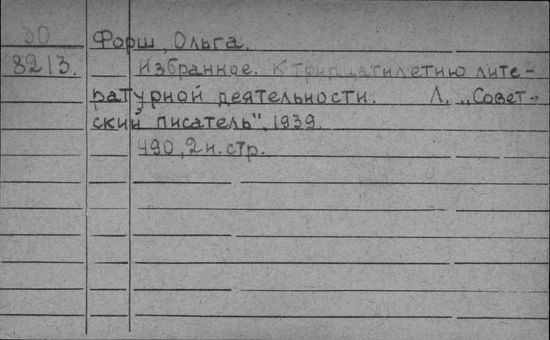 30
Форш, Ольга.
8213.
Избранное. К тридцатилетию лите-
ратурной деятельности. Л. „Совет-
ский писатель", 1939.
490, 2 н. стр.